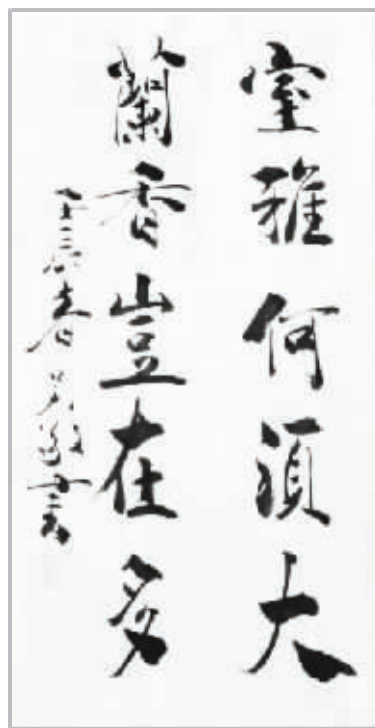 室雅何須大
蘭香豈在多
壬辰春吴敬書